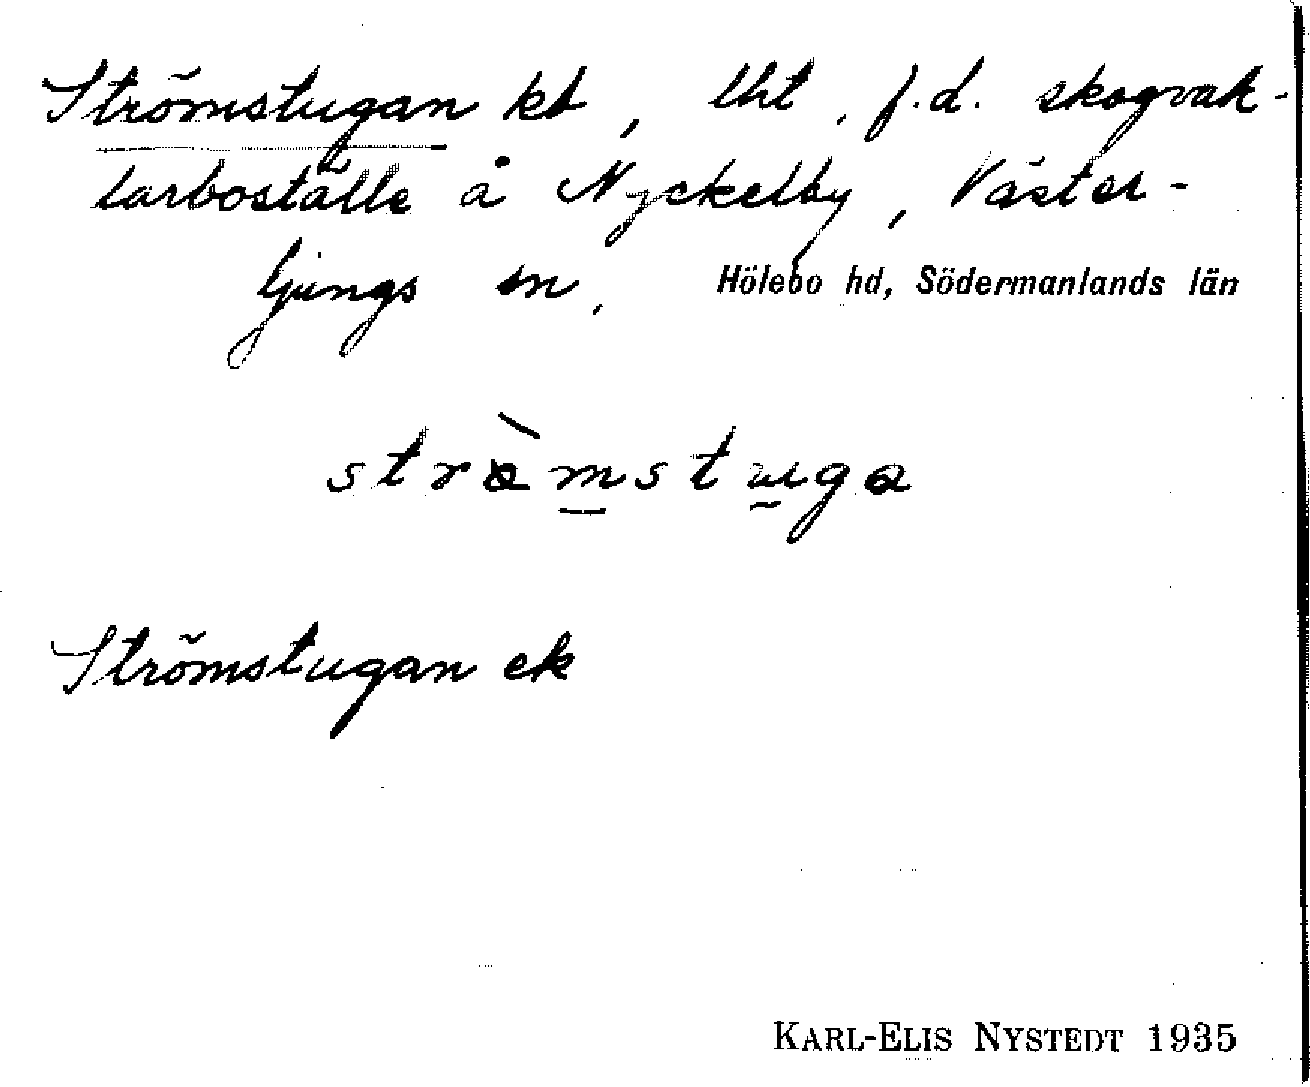 Strömstugan kt, lht, f.d. skogvak-
tarboställe å Nyckelby, Väster-
ljungs sn, Hölebo hd, Södermanlands län
stròmstuga
Strömstugan ek
KARL-ELIS NYSTEDT 1935